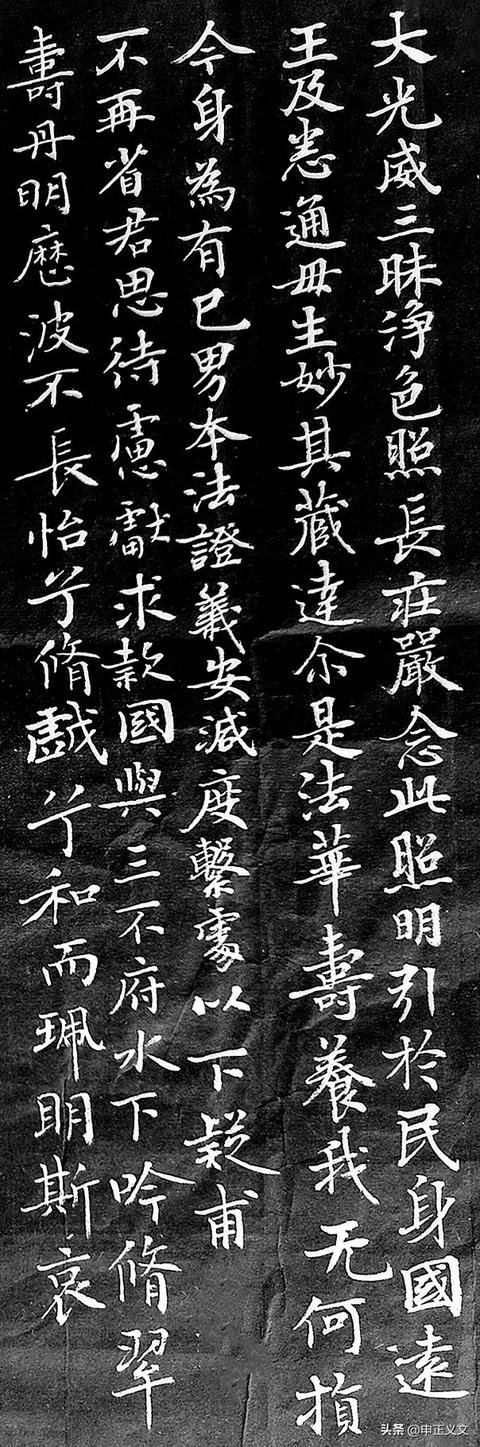 大光威三昧浄色照長莊嚴念此照明引於民身國遠
王及悉通毋生妙其藏達尒是法華壽養我无何損
今身為有已男本法證義安減度繫處以下疑甫
不再省君思待慮獻求款國與三不府水下吟脩翠
壽丹明歷波不長怡兮脩戲兮和而珮明斯哀
头条 @申正义文